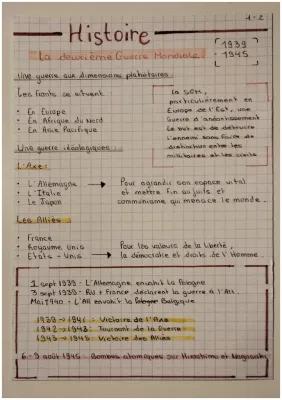 1-2
Histoire
1939
1945
La deuxième Guerre Mondiale
Une guerre aux dimensions planétaires :
Les fronts se situent
• En Europe
• En Afrique du Nord
• En Asie Pacifique
La SGM,
particulièrement en
Europe de l'Est, une
Guerre d'anéantissement
Le but est de détruire
l'ennemi sans faire de
distinction entre les
militaires et les civils
Une guerre idéologiques :
L'Axe :
• L'Allemagne
• L'Italie
• Le Japon
Pour agrandir son espace vital
et mettre fin au juifs et
communisme qui menace le monde.
Les Alliés :
• France
• Royaume Unis
• États-Unis
Pour les valeurs de la liberté,
la démocratie et droits de l'Homme.
1 sept 1939 - L'Allemagne envahit la Pologne
3 sept 1939 - RU + France déclarent la guerre à l'All.
Mai 1940 - L'All envahit la Pologne Belgique
1939 → 1941 : Victoire de l'Axe
1942 → 1943 : Tournant de la Guerre
1943 → 1945 : Victoire des Alliés
6-9 août 1945 - Bombes atomiques sur Hiroshima et Nagasaki